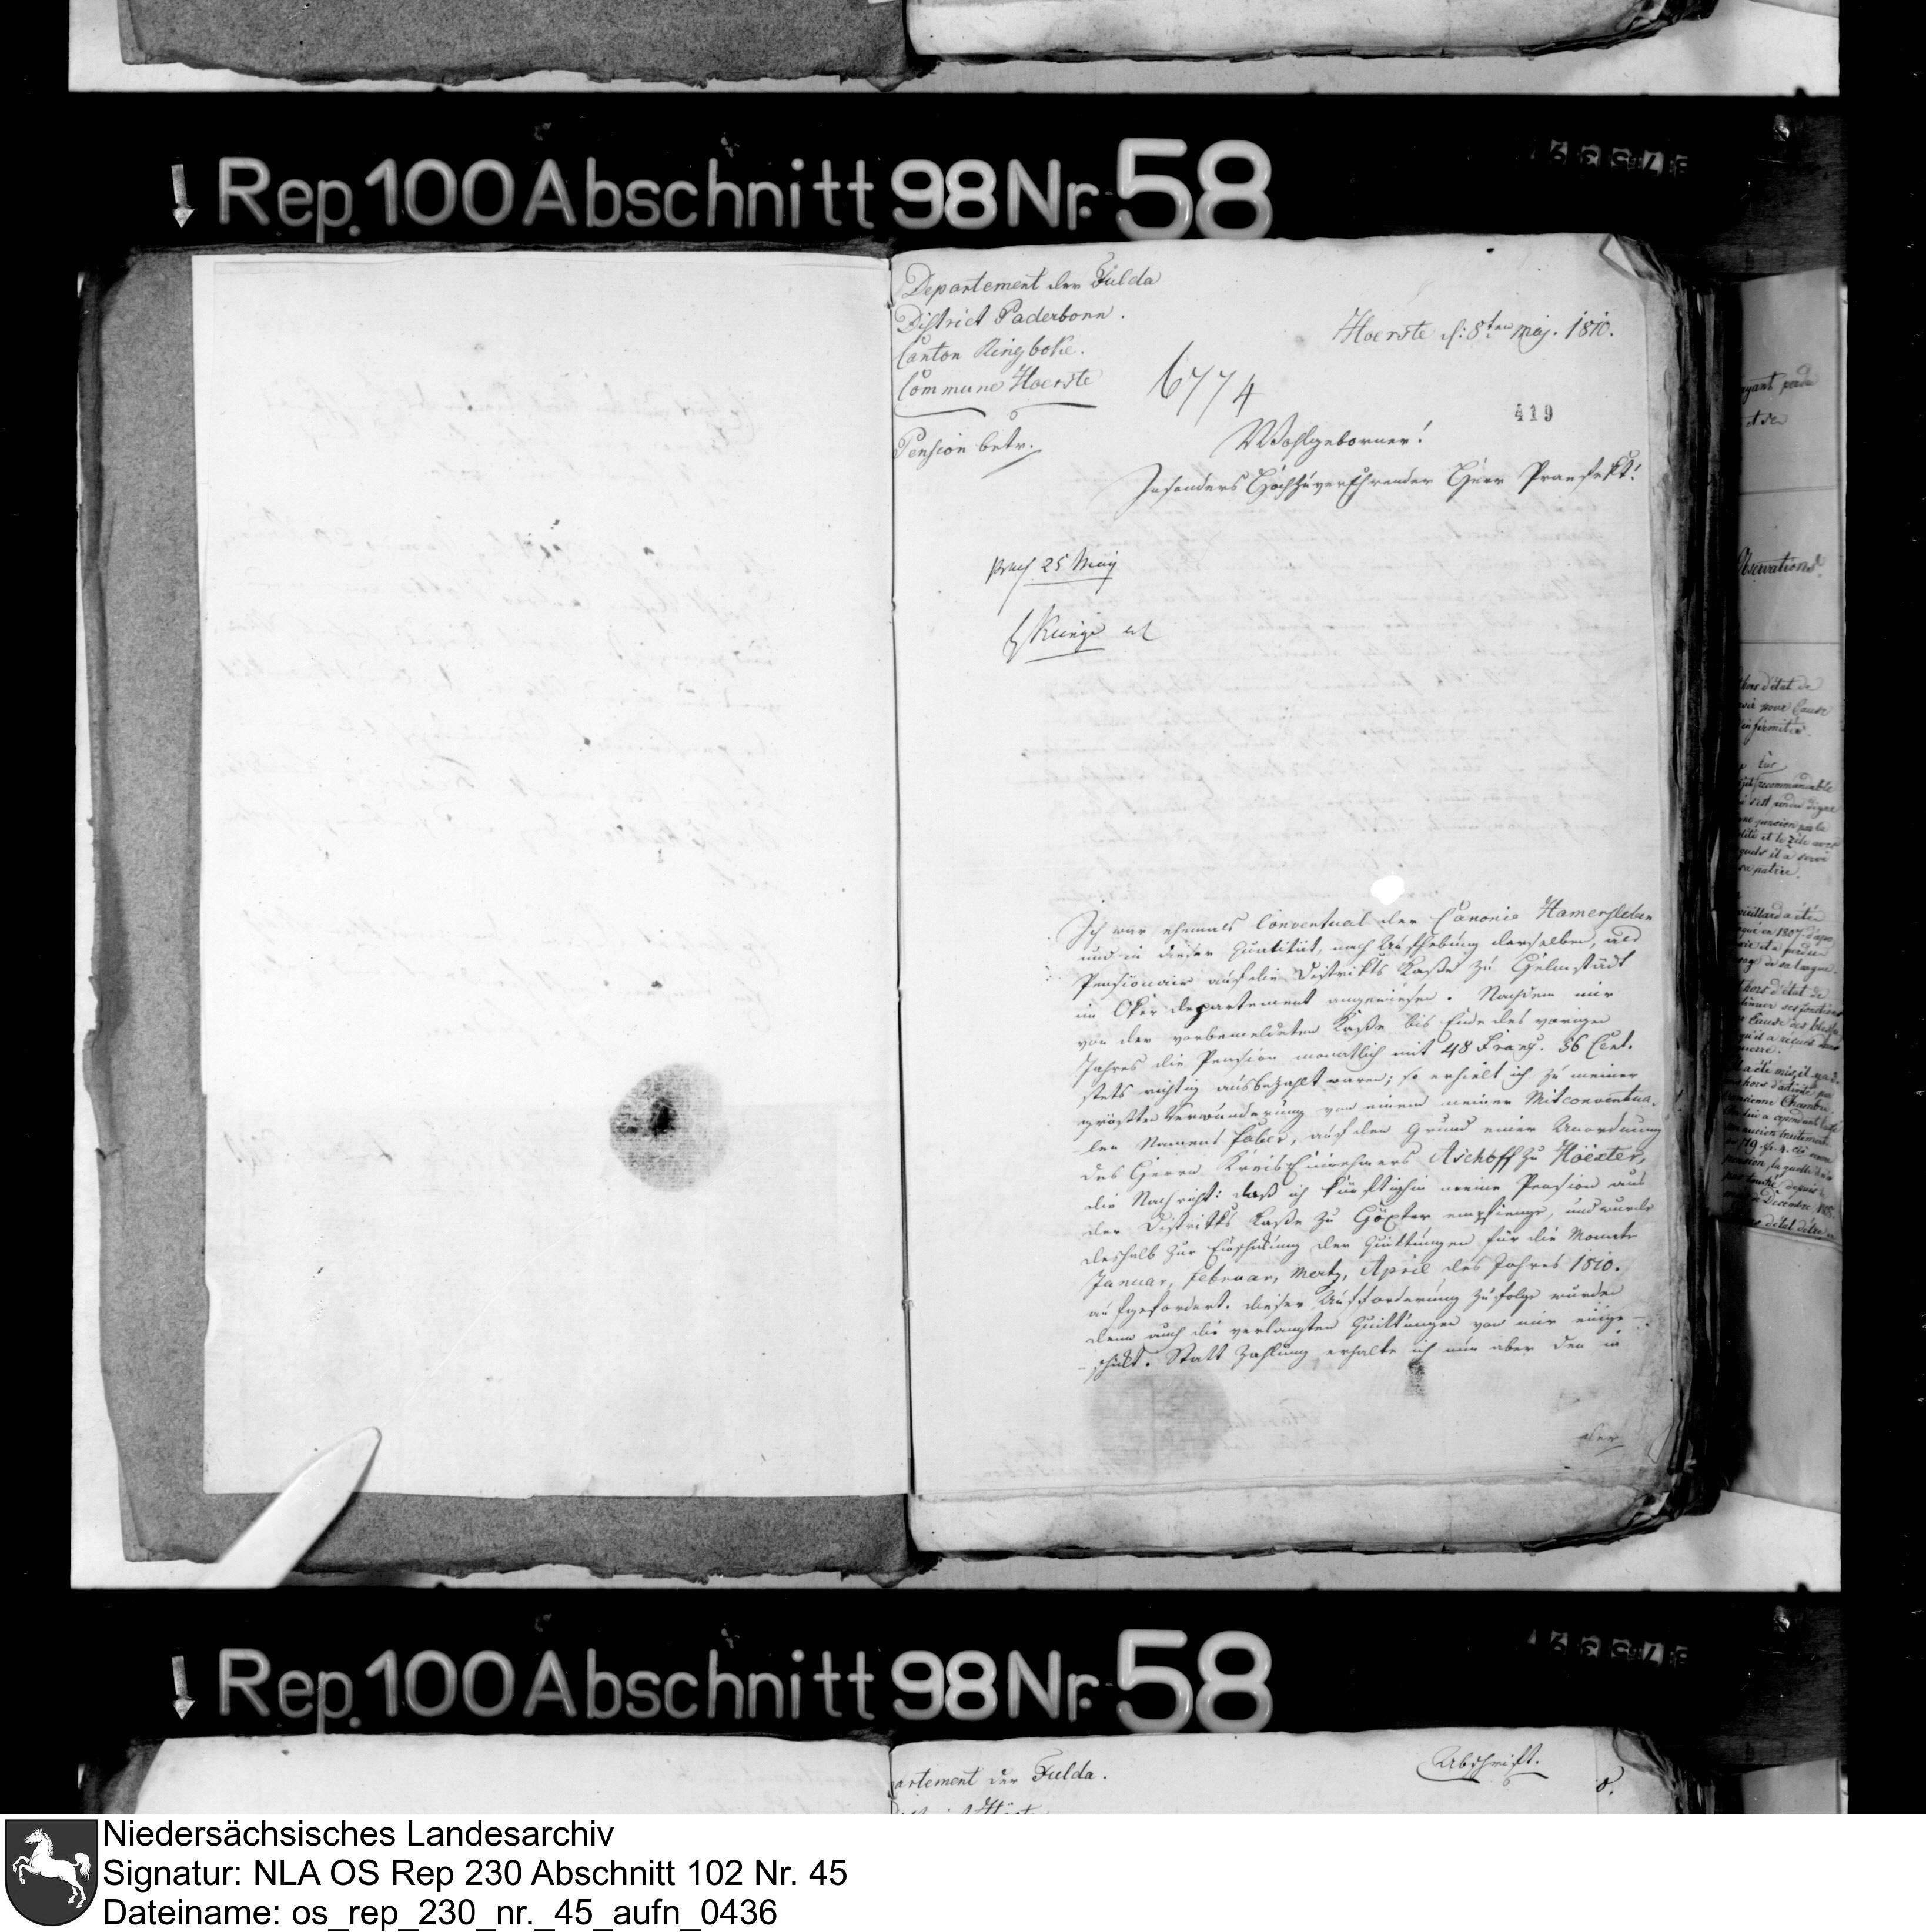 Rep. 100 Abschnitt 98 Nr. 58
Departement der Fulda
District Paderborn.
Canton Ringboke.
Commune Hoerste
Pension betr.
Hoerste d: 8ten May. 1810.
6774
419
Wohlgeborner!
Insonders Hochzuverehrender Herr Praefekt!
25 May
Ich war ehemals Conventual der Canonie Hamersleben
und in dieser Qualität, nach Aufhebung derselben, als
Pensionair auf die Distrikts Kaße zu Helmstädt
im Oker departement angewiesen. Nachdem mir
von der vorbemeldeten Kaße bis Ende des vorigen
Jahres die Pension monatlich mit 48 Franz. 56 Cent.
stets richtig ausbezahlt waren; so erhielt ich zu meiner
größten Verwunderung von einem meiner Mitconventua-
len Namens Faber, auf den Grund einer Anordnung
des Herrn Kreis Einnehmers Aschoff zu Höexter,
die Nachricht: daß ich künftighin meine Pension aus
der Distrikts Kaße zu Höxter empfienge, und wurde
deshalb zur Einschickung der Quittungen für die Monate
Januar, Februar, Mertz, April des Jahres 1810.
aufgefordert. Dieser Aufforderung zufolge wurden
denn auch die verlangten Quittungen von mir einge-
-schickt. Statt Zahlung erhalte ich nun aber den in
der
Observations
hors d'état de
pour Cause
infirmités
recommandable
s'est rendu digne
pension par la
et le zèle avec
il a servi
sa patrie.
hors d'état de
Rep. 100 Abschnitt 98 Nr. 58
artement der Fulda.
Abschrift.
Niedersächsisches Landesarchiv
Signatur: NLA OS Rep 230 Abschnitt 102 Nr. 45
Dateiname: os_rep_230_nr._45_aufn_0436